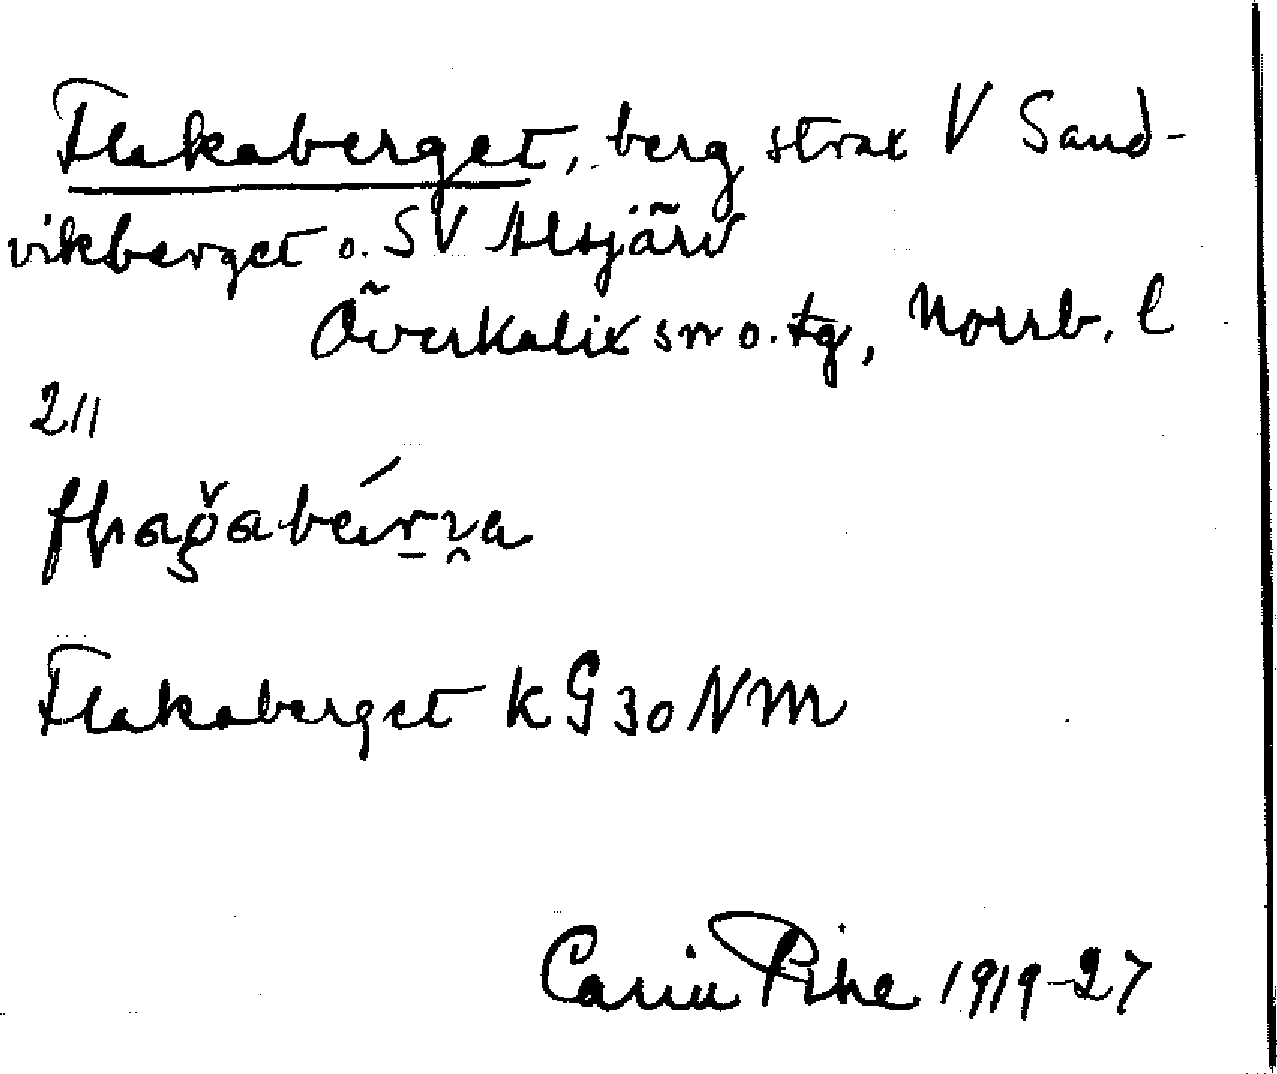 Flakaberget, berg strax V Sand-
vikberget o. SV Alsjärv
Överkalix sn o. tg, Norrb. l
211
Flakaberget KG 30 NM
Carin Pihl 1919-27